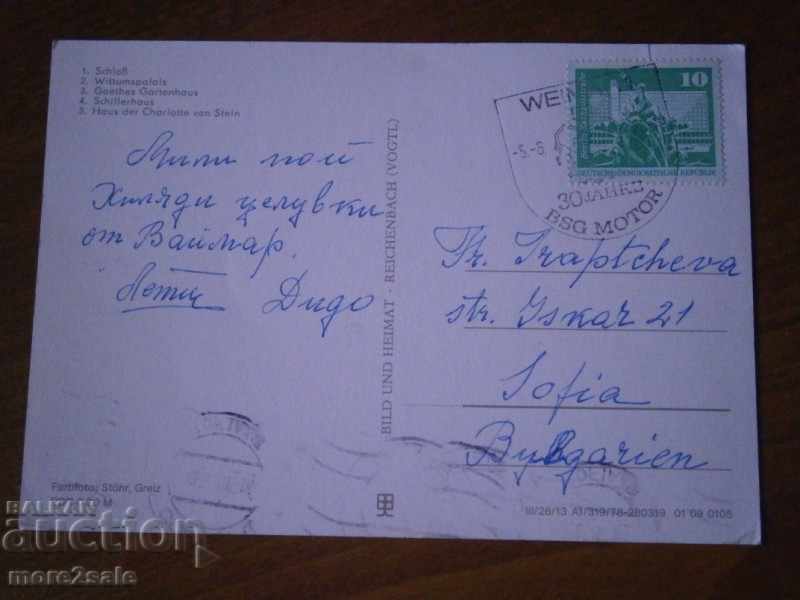 1. Schloß
2. Wittumspalais
3. Goethes Gartenhaus
4. Schillerhaus
5. Haus der Charlotte von Stein
Мили мой
Хиляди целувки
от Ваймар.
Дидо
BILD UND HEIMAT · REICHENBACH (VOGTL)
10
DEUTSCHE DEMOKRATISCHE REPUBLIK
30 JAHRE
BSG MOTOR
Fr. Traptcheva
str. Iskar 21
Sofia
Bulgarien
Farbfoto: Stöhr, Greiz
M
III/26/13 A1/319/78-280319 01 09 0105
BALKAN
auction
more2sale